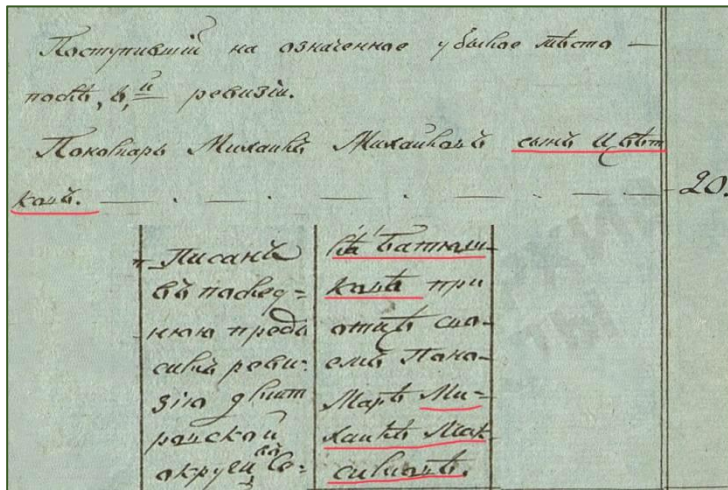 Поступившій на означенное убылое мѣсто
послѣ, 6, й ревизіи.
Пономарь Михаилъ Михайловъ сынъ Цвѣт
ковъ. — . — . — . — . — . — 20.
Писанъ
въ послед=
нюю предъ
симъ реви=
зію дмит
ровской
округи, во=
селѣ Батюш=
ковѣ при
отцѣ сво=
емъ Поно=
марѣ Ми=
хаилѣ Мак
симовѣ.